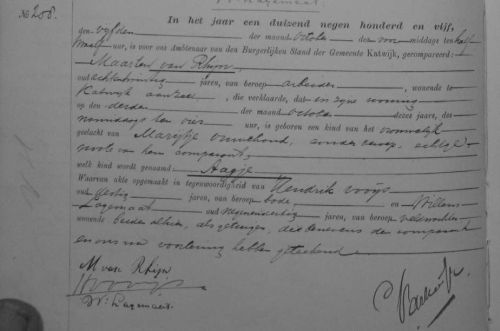 No 258.
In het jaar een duizend negen honderd en vijf,
den vijfden der maand October des voor middags ten half
twaalf uur, is voor ons Ambtenaar van den Burgerlijken Stand der Gemeente Katwijk, gecompareerd:
Maarten van Rhijn,
oud jaren, van beroep arbeider, wonende te
Katwijk aan Zee, die verklaarde, dat in zijne woning
op den derden der maand October dezes jaars, des
namiddags ten vier uur, is geboren een kind van het vrouwelijk
geslacht van Marijtje zonder beroep, echtge-
noote van hem comparant,
welk kind wordt genaamd: Aagje
Waarvan akte opgemaakt in tegenwoordigheid van Hendrik Vooijs
oud zestig jaren, van beroep bode, en Willem
Lagemaat oud jaren, van beroep veldwachter
wonende beiden alhier, als getuigen, die benevens den comparant
en ons na voorlezing hebben geteekend.
M van Rhijn
W. Lagemaat.